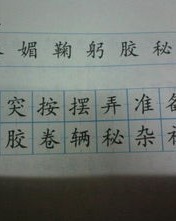 媚鞠躬胶秘
突按摆弄准备
胶卷辆秘杂